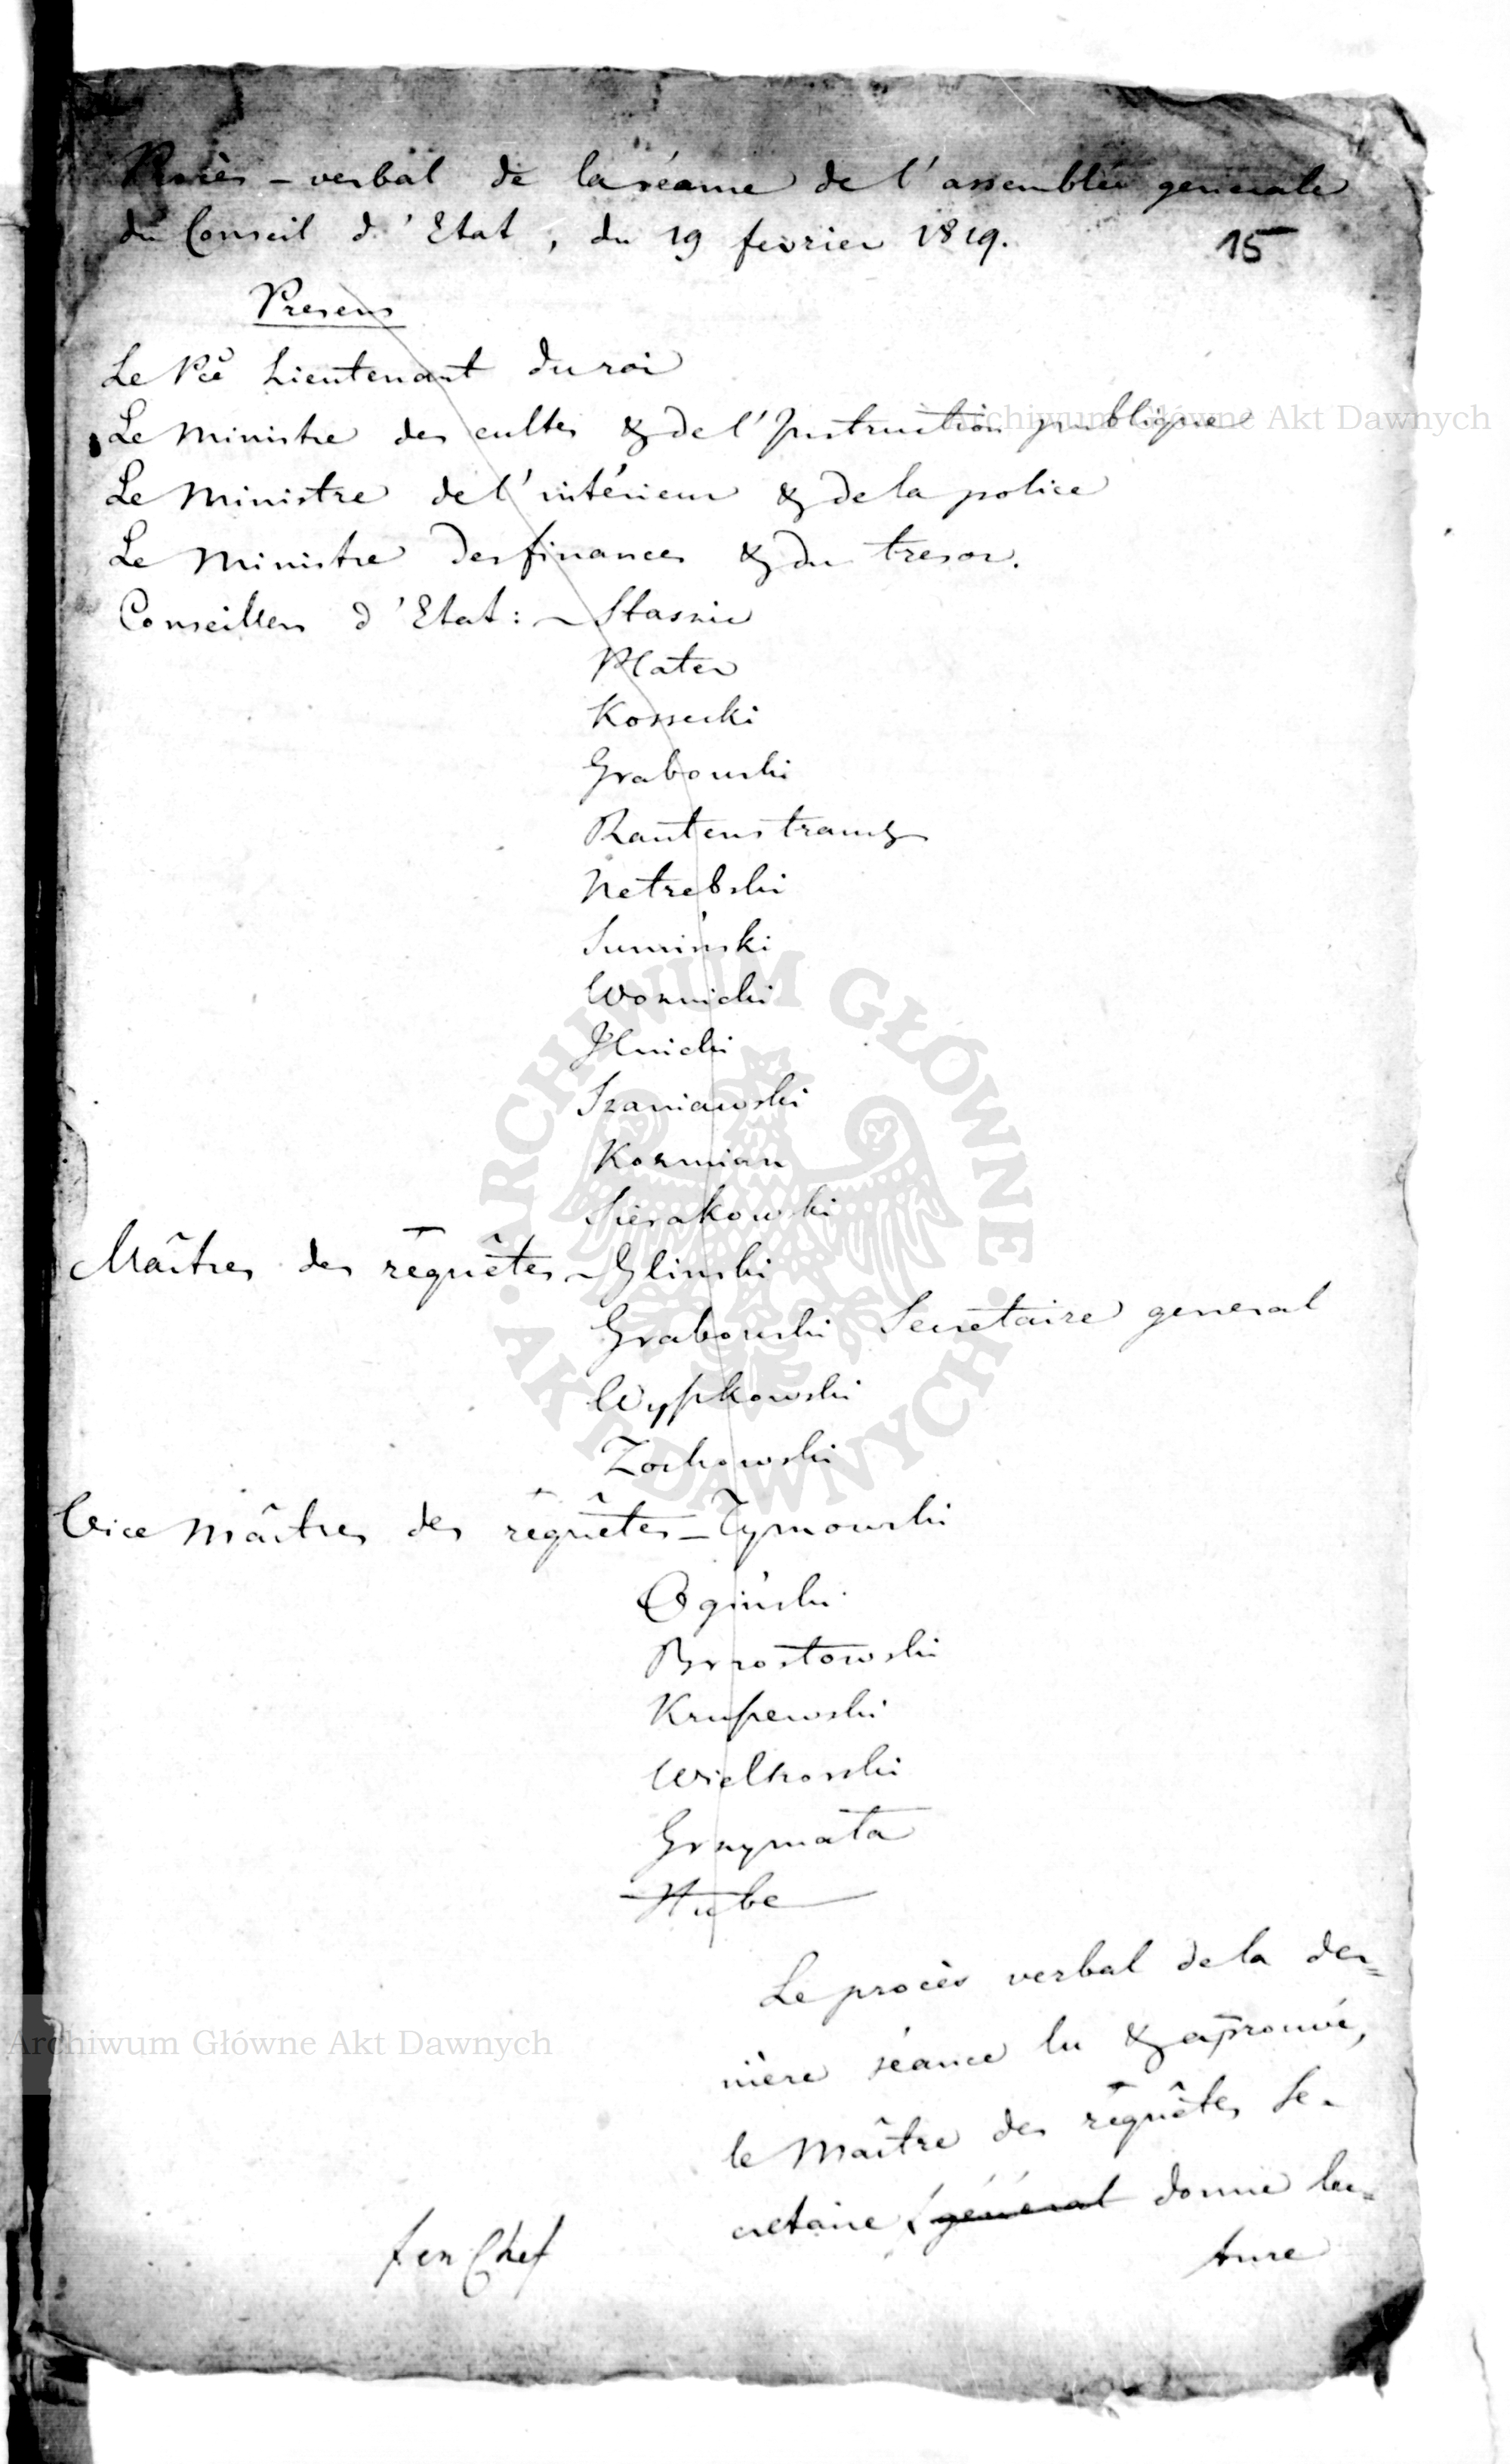 Procès-verbal de la séance de l'assemblée generale
du Conseil d'Etat, du 19 fevrier 1819.
15
Presens
Le Pce Lieutenant du roi
Le Ministre des cultes & de l'Instruction publique
Le Ministre de l'intérieur & de la police
Le Ministre des finances & du tresor.
Conseillers d'Etat: - Stassic
Plater
Kossecki
Grabowski
Rautenstrauch
Netrebski
Sumiński
Woznicki
Ilnicki
Szaniawski
Kozmian
Sierakowski
Maîtres des réquêtes - Glinski
Grabowski Secretaire general
Wyszkowski
Zochowski
Vice Maîtres des réquêtes - Tymowski
Ogiński
Brzostowski
Kruszewski
Wielhorski
Grzymała
Hube
Le procès verbal de la der=
nière séance lu & aprouvé,
le Maître des réquêtes Se-
cretaire général donne lec=
ture
f en Chef
Archiwum Główne Akt Dawnych
ARCHIWUM GŁÓWNE AKT DAWNYCH
Archiwum Główne Akt Dawnych